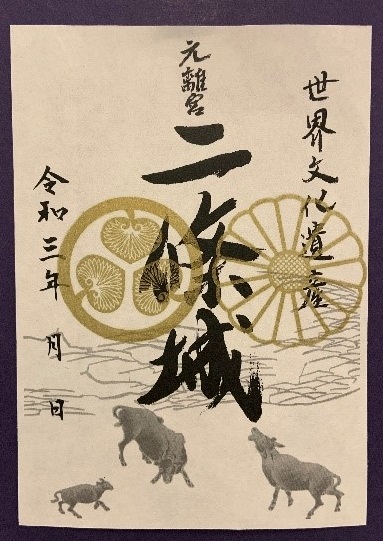 世界文化遺産
元離宮
二條城
令和三年 月 日